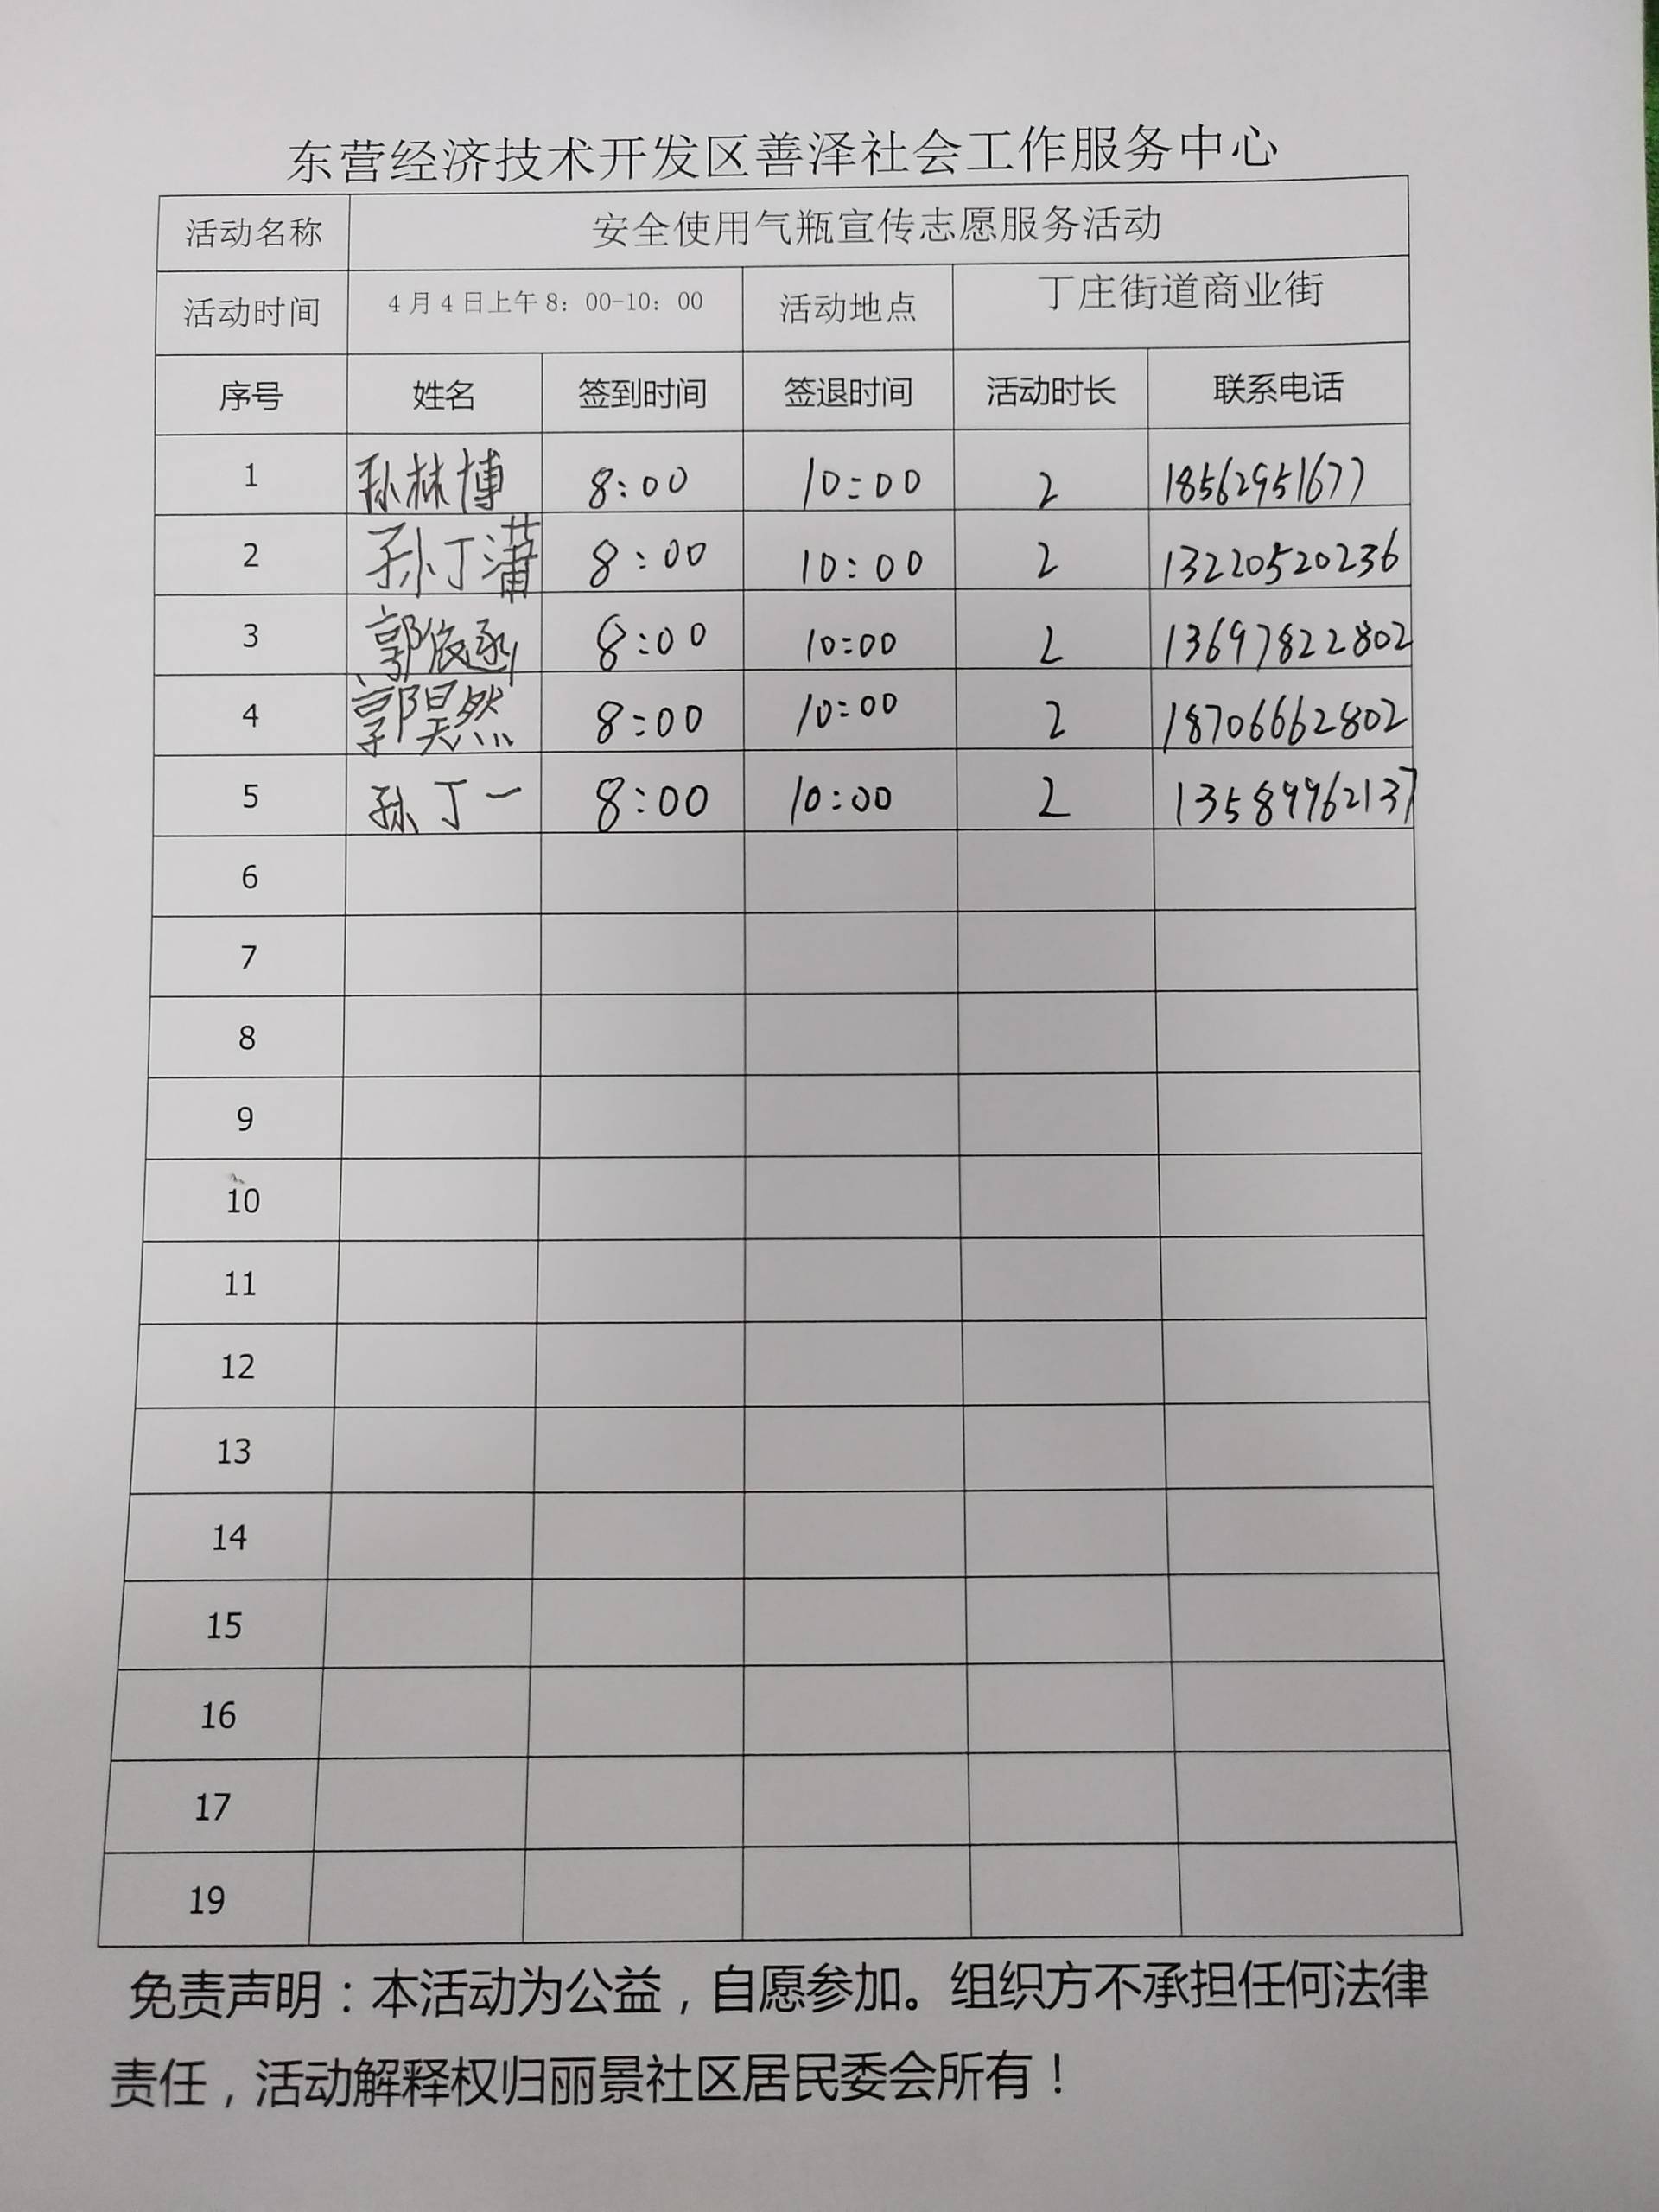 东营经济技术开发区善泽社会工作服务中心
活动名称 安全使用气瓶宣传志愿服务活动
活动时间 4月4日上午8：00-10：00 活动地点 丁庄街道商业街
序号 姓名 签到时间 签退时间 活动时长 联系电话
1 孙林博 8:00 10:00 2 18562951677
2 孙丁 8:00 10:00 2 13220520236
3 郭依函 8:00 10:00 2 13697822802
4 郭昊然 8:00 10:00 2 18706662802
5 孙丁一 8:00 10:00 2 13589962137
6
7
8
9
10
11
12
13
14
15
16
17
19
免责声明：本活动为公益，自愿参加。组织方不承担任何法律
责任，活动解释权归丽景社区居民委会所有！